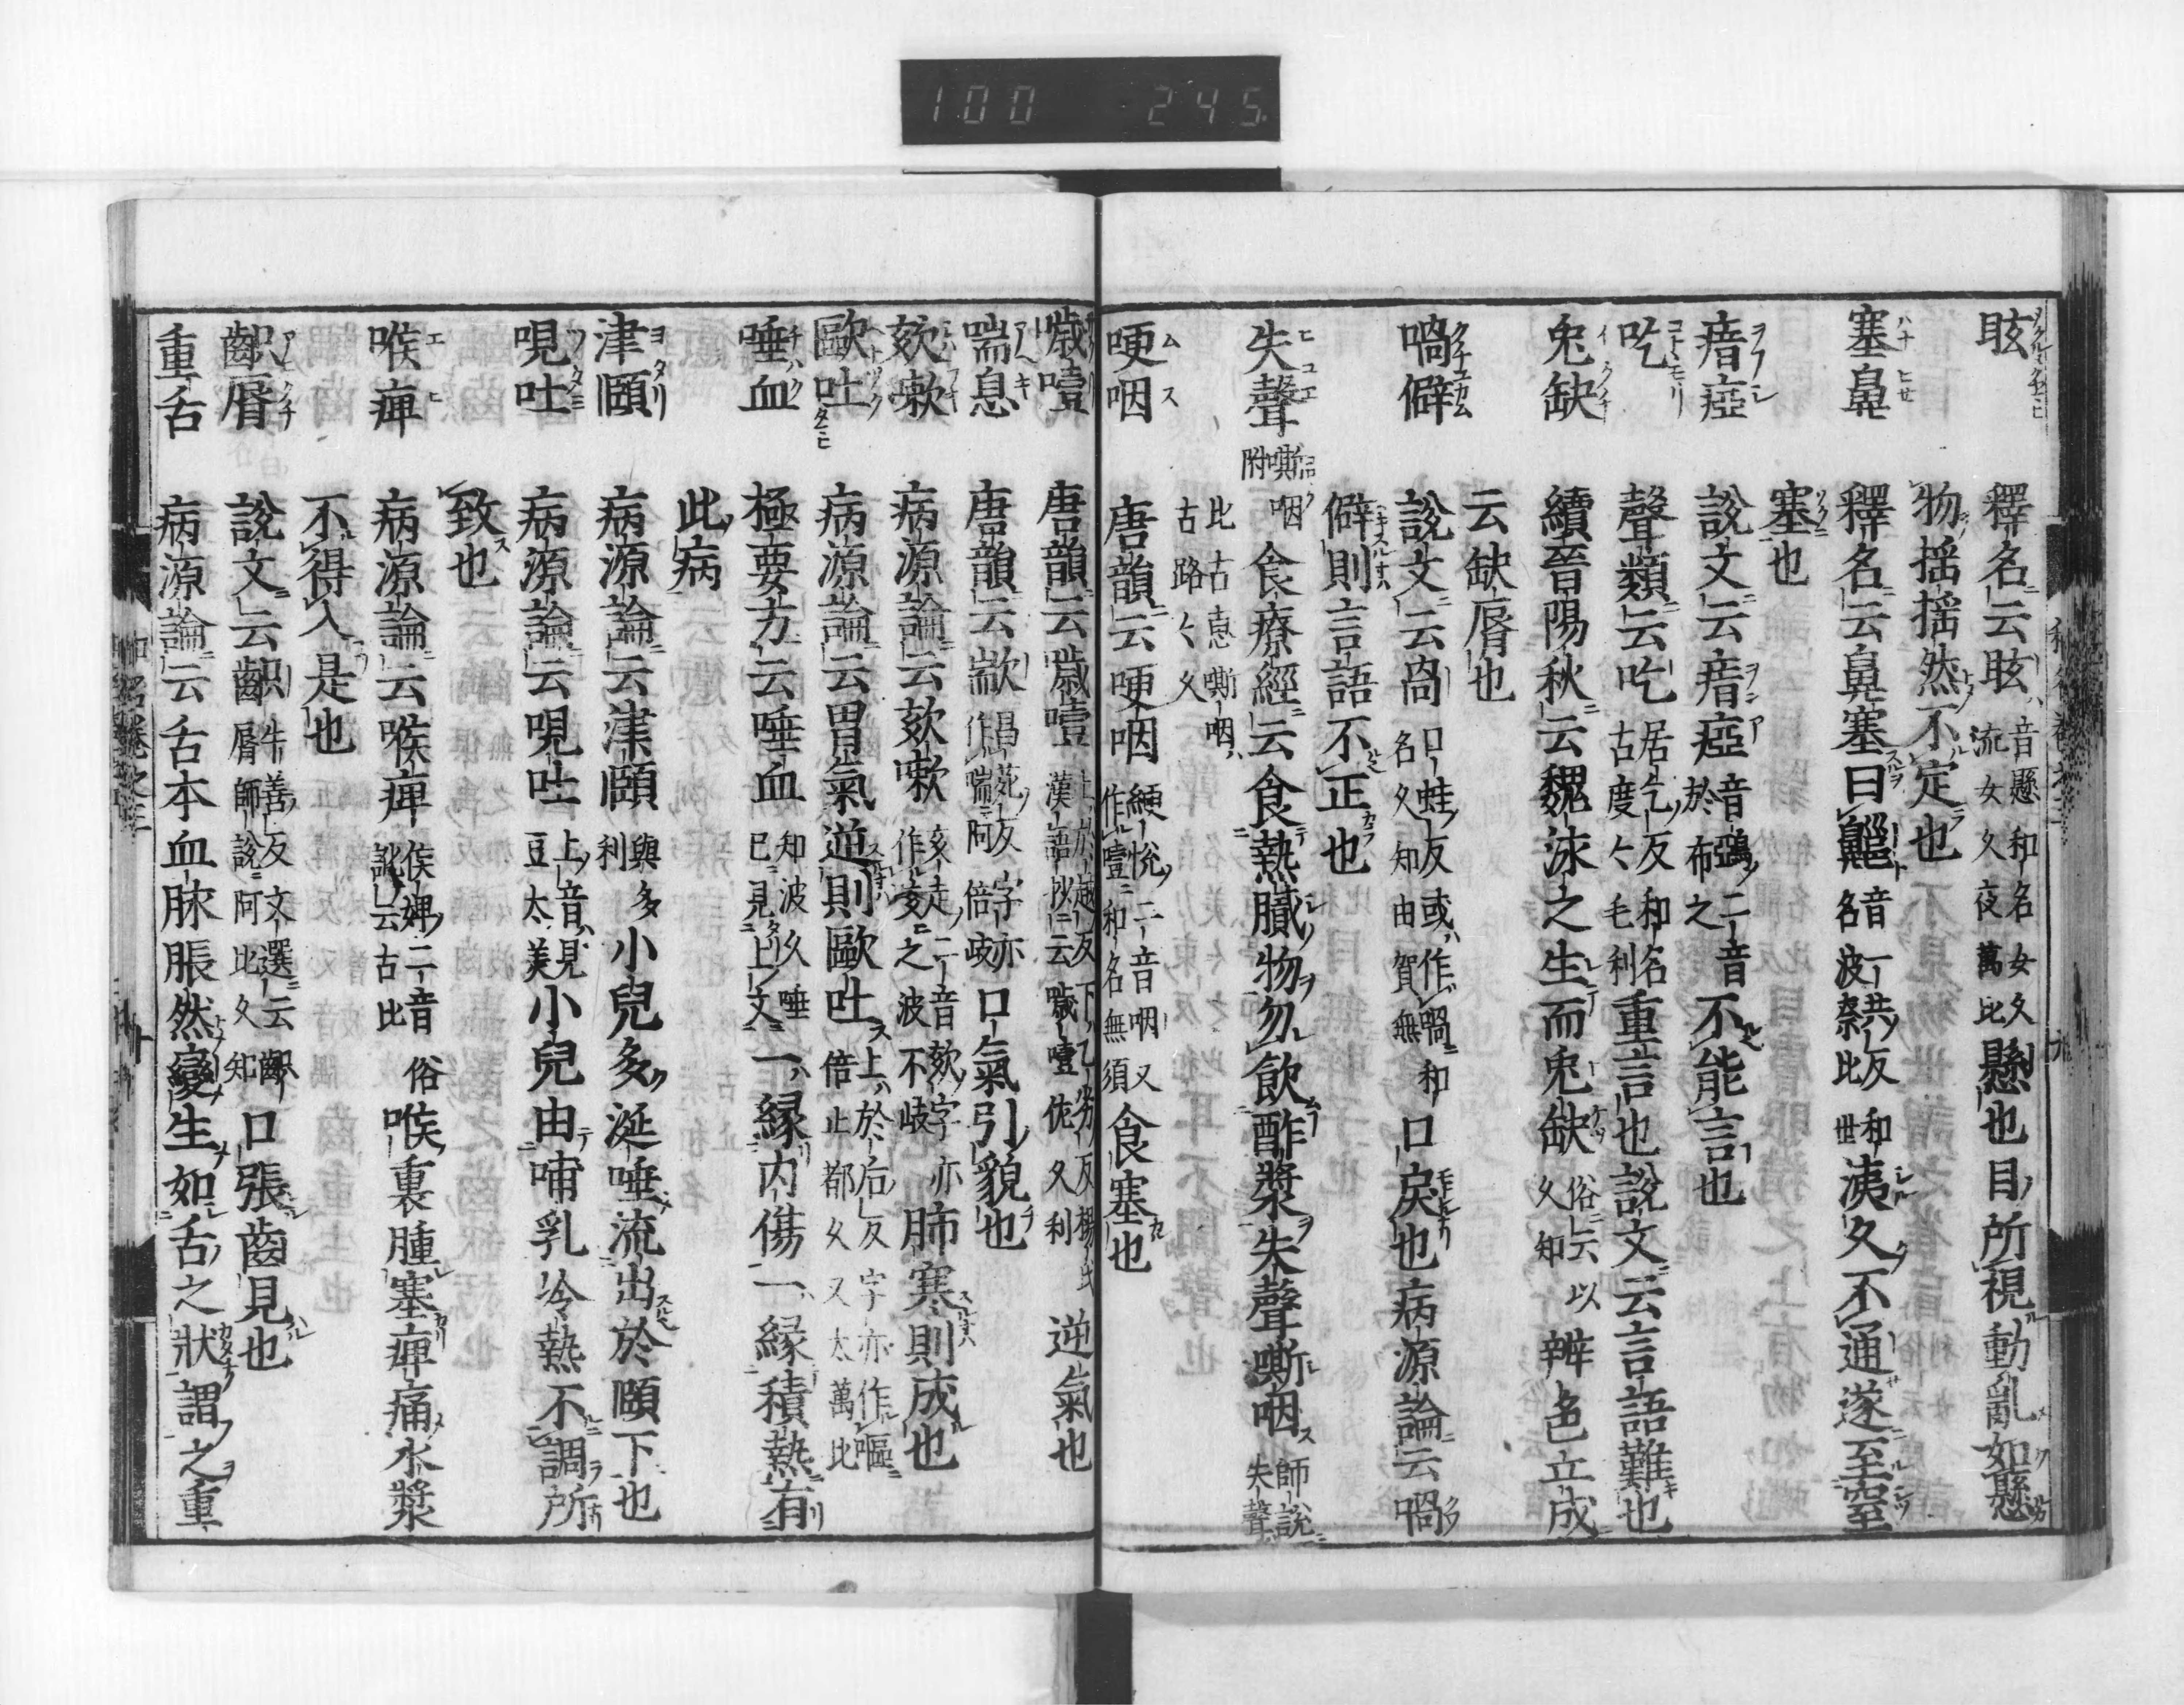 100 245
眩 釋名云眩 音懸和名女久流女久夜萬比 懸也目所視動亂如懸
物揺揺然不定也
塞鼻 釋名云鼻塞曰鼽 音一共反和名波奈比世 洟久不通遂至窒
塞也
瘖瘂 說文云瘖瘂 音鵶二音於布之 不能言也
吃 聲類云吃 居乞反和名古度々毛利 重言也說文云言語難也
兎缺 續晉陽秋云魏泳之生而兎缺 俗云以久知 辨色立成
云缺脣也
喎僻 說文云咼 口蛙反或作喎和名久知由賀無 口戾也病源論云喎
僻則言語不正也
失聲 嘶咽附 食療經云食熱膩物勿飲酢漿失聲嘶咽 師說失聲
比古惠嘶咽古路々久
哽咽 唐韻云哽咽 綆悅二音咽又作噎和名無須 食塞也
噦噎 唐韻云噦噎 上於越反下乙劣反楊氏漢語抄云噦噎佐久利 逆氣也
喘息 唐韻云歂 昌苑反字亦作喘阿倍岐 口氣引貌也
欬嗽 病源論云欬嗽 亥走二音欬字亦作咳之波不岐 肺寒則成也
歐吐 病源論云胃氣逆則歐吐 上於后反字亦作嘔倍止都久又太萬比
唾血 極要方云唾血 知波久唾已見上文 一縁内傷一縁積熱有
此病
津頤 病源論云津頤 與多利 小兒多涎唾流出於頤下也
哯吐 病源論云哯吐 上音見豆太美 小兒由哺乳冷熱不調所
致也
喉痺 病源論云喉痺 俟婢二音俗訛云古比 喉裏腫塞痺痛水漿
不得入是也
齞脣 說文云齞 牛善反文選云齞脣師說阿比久知 口張齒見也
重舌 病源論云舌本血脉脹然變生如舌之狀謂之重